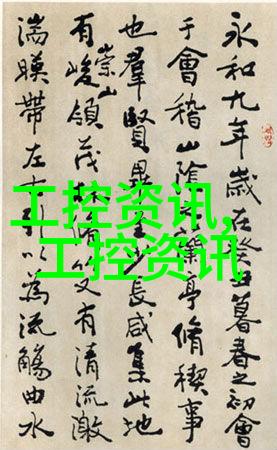 永和九年歲在癸丑暮春之初會
于會稽山陰之蘭亭脩稧事
也羣賢畢至少長咸集此地
有崇山峻領茂林脩竹又有清流激
湍暎帶左右引以為流觴曲水
工控资讯,
工控资讯